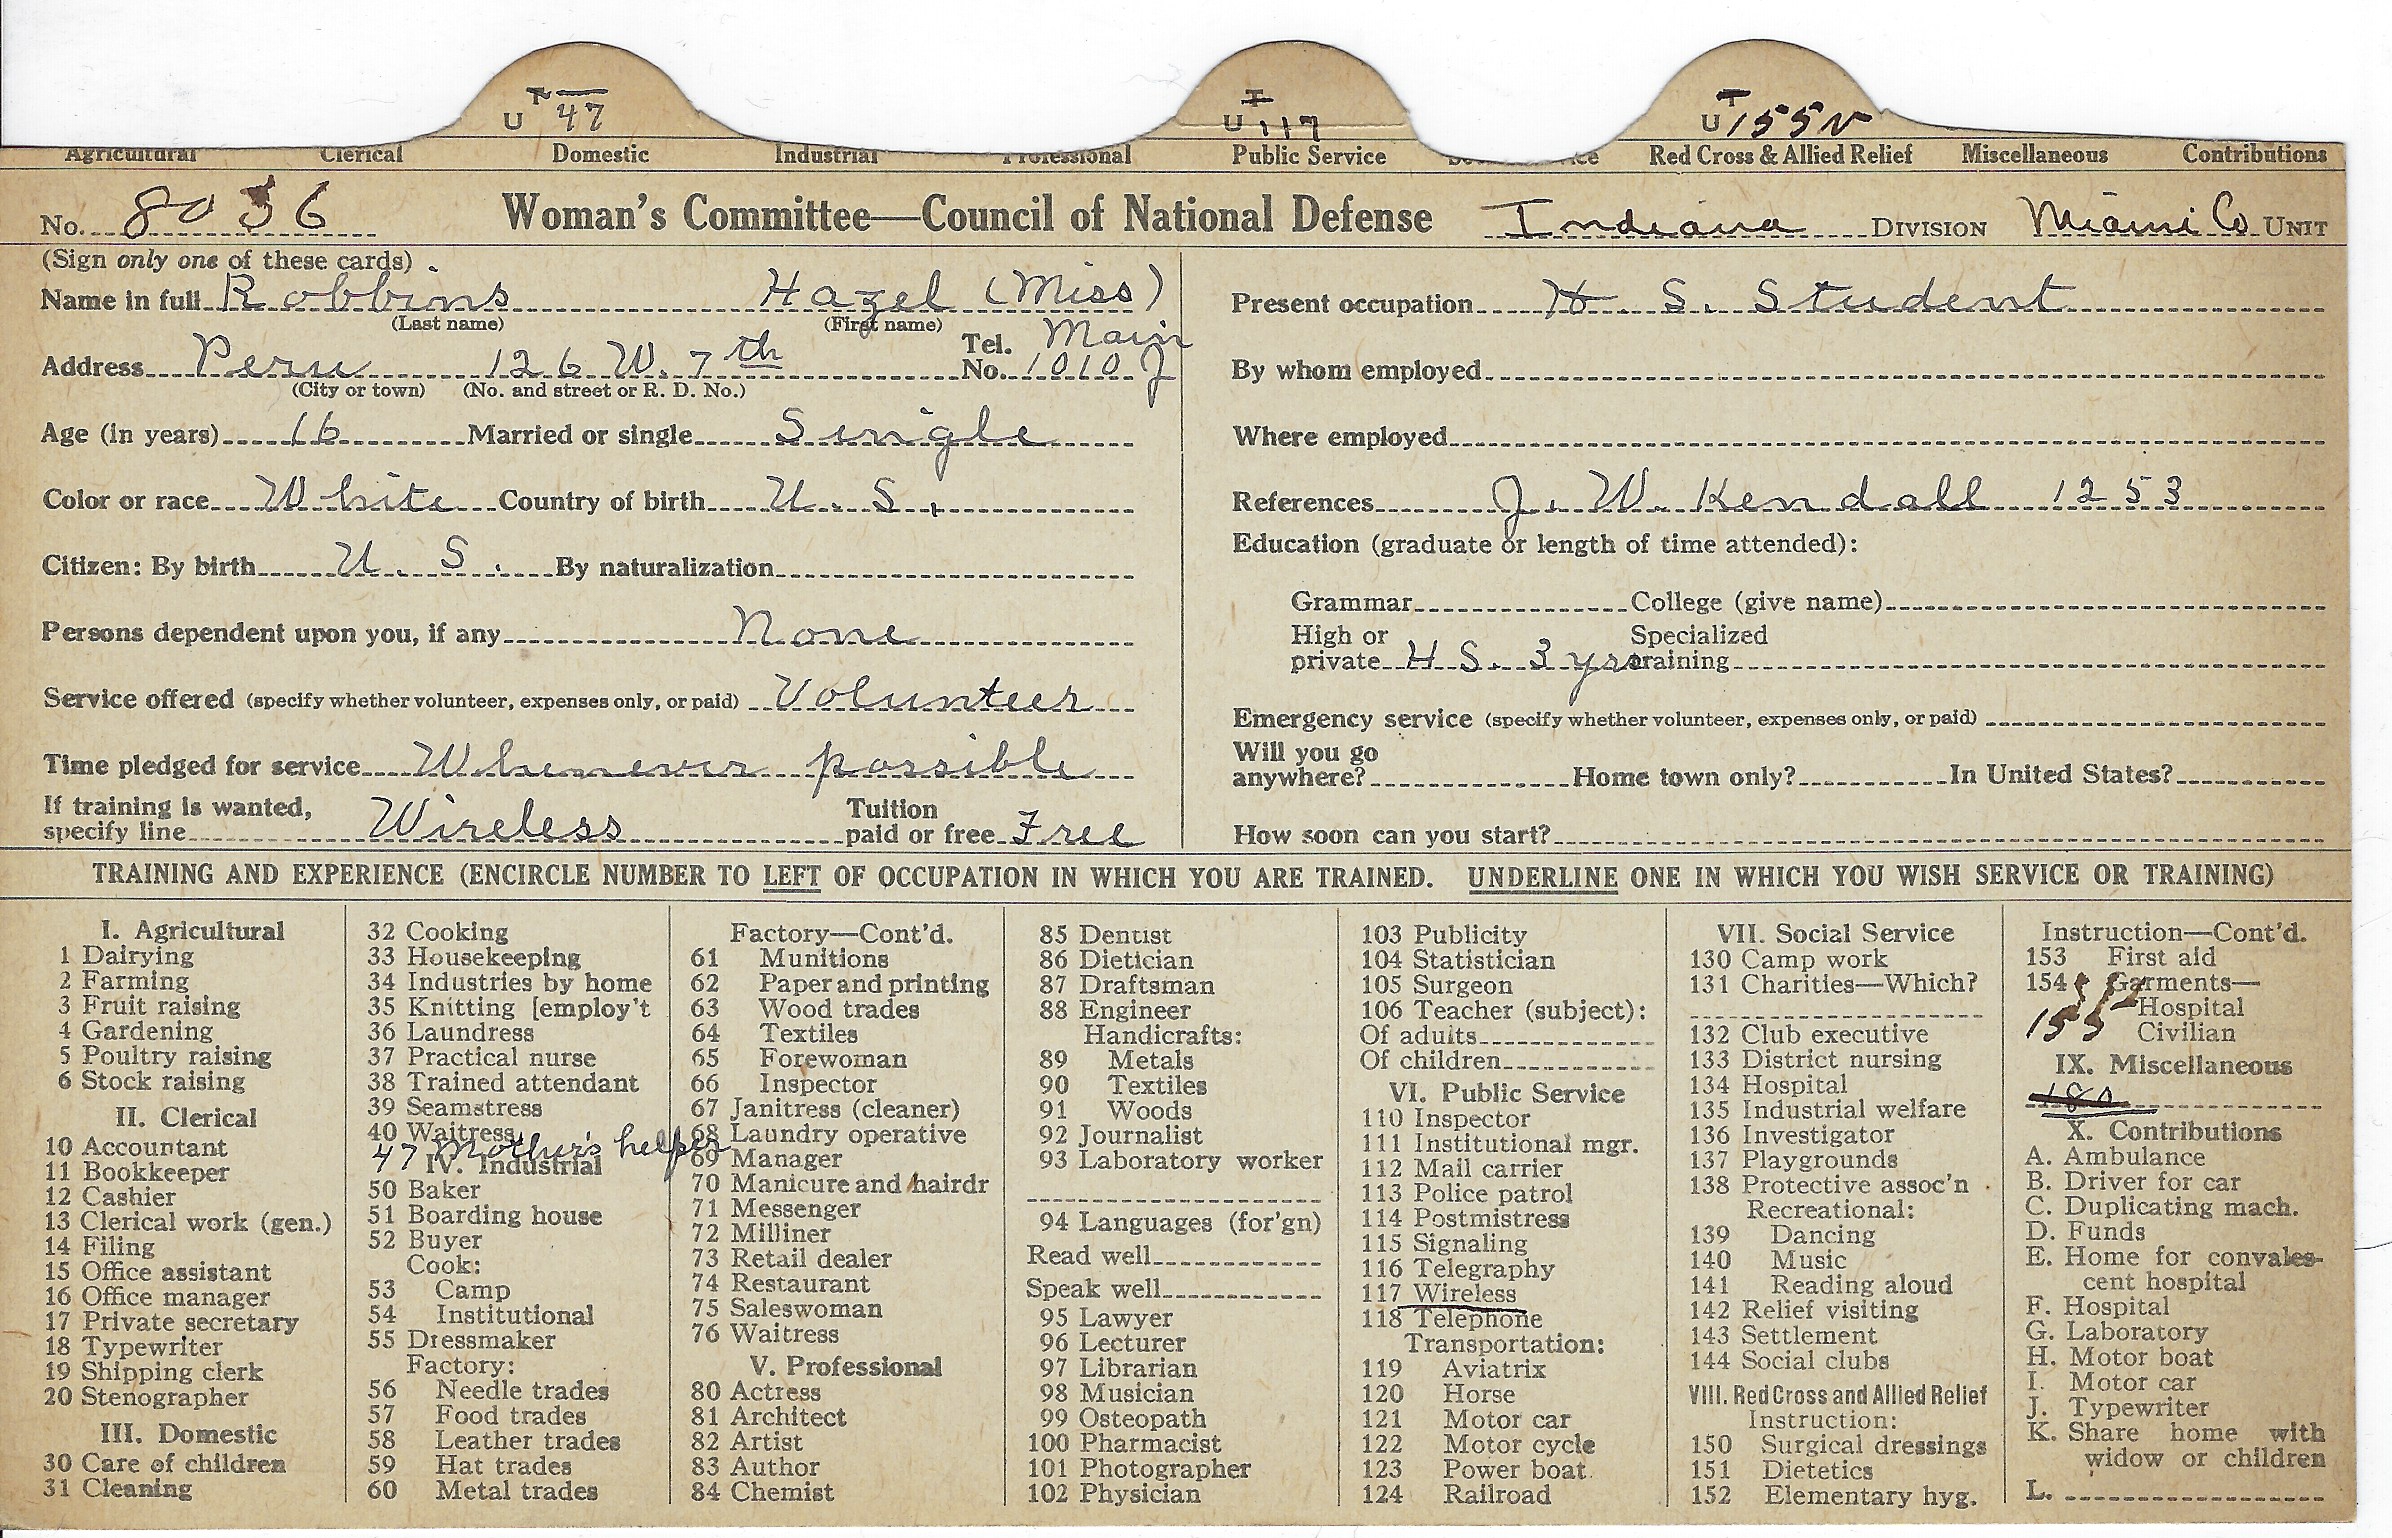 U T 47
U T 117
U T 155 N
Agricultural Clerical Domestic Industrial Professional Public Service Red Cross & Allied Relief Miscellaneous Contributions
No. 8036 Woman's Committee—Council of National Defense Indiana DIVISION Miami Co UNIT
(Sign only one of these cards)
Name in full Robbins Hazel (Miss)
(Last name) (First name)
Address Peru 126 W. 7th Tel. No. Main 1010 J
(City or town) (No. and street or R. D. No.)
Age (in years) 16 Married or single Single
Color or race White Country of birth U. S.
Citizen: By birth U. S. By naturalization
Persons dependent upon you, if any None
Service offered (specify whether volunteer, expenses only, or paid) Volunteer
Time pledged for service Whenever possible
If training is wanted,
specify line Wireless Tuition paid or free Free
Present occupation H. S. Student
By whom employed
Where employed
References J. W. Kendall 1253
Education (graduate or length of time attended):
Grammar College (give name)
High or private H S. 3 yrs Specialized training
Emergency service (specify whether volunteer, expenses only, or paid)
Will you go
anywhere? Home town only? In United States?
How soon can you start?
TRAINING AND EXPERIENCE (ENCIRCLE NUMBER TO LEFT OF OCCUPATION IN WHICH YOU ARE TRAINED. UNDERLINE ONE IN WHICH YOU WISH SERVICE OR TRAINING)
I. Agricultural
1 Dairying
2 Farming
3 Fruit raising
4 Gardening
5 Poultry raising
6 Stock raising
II. Clerical
10 Accountant
11 Bookkeeper
12 Cashier
13 Clerical work (gen.)
14 Filing
15 Office assistant
16 Office manager
17 Private secretary
18 Typewriter
19 Shipping clerk
20 Stenographer
III. Domestic
30 Care of children
31 Cleaning
32 Cooking
33 Housekeeping
34 Industries by home
35 Knitting [employ't
36 Laundress
37 Practical nurse
38 Trained attendant
39 Seamstress
40 Waitress
47 Mother's helper
IV. Industrial
50 Baker
51 Boarding house
52 Buyer
Cook:
53 Camp
54 Institutional
55 Dressmaker
Factory:
56 Needle trades
57 Food trades
58 Leather trades
59 Hat trades
60 Metal trades
Factory—Cont'd.
61 Munitions
62 Paper and printing
63 Wood trades
64 Textiles
65 Forewoman
66 Inspector
67 Janitress (cleaner)
68 Laundry operative
69 Manager
70 Manicure and hairdr
71 Messenger
72 Milliner
73 Retail dealer
74 Restaurant
75 Saleswoman
76 Waitress
V. Professional
80 Actress
81 Architect
82 Artist
83 Author
84 Chemist
85 Dentist
86 Dietician
87 Draftsman
88 Engineer
Handicrafts:
89 Metals
90 Textiles
91 Woods
92 Journalist
93 Laboratory worker
94 Languages (for'gn)
Read well
Speak well
95 Lawyer
96 Lecturer
97 Librarian
98 Musician
99 Osteopath
100 Pharmacist
101 Photographer
102 Physician
103 Publicity
104 Statistician
105 Surgeon
106 Teacher (subject):
Of adults
Of children
VI. Public Service
110 Inspector
111 Institutional mgr.
112 Mail carrier
113 Police patrol
114 Postmistress
115 Signaling
116 Telegraphy
117 Wireless
118 Telephone
Transportation:
119 Aviatrix
120 Horse
121 Motor car
122 Motor cycle
123 Power boat
124 Railroad
VII. Social Service
130 Camp work
131 Charities—Which?
132 Club executive
133 District nursing
134 Hospital
135 Industrial welfare
136 Investigator
137 Playgrounds
138 Protective assoc'n
Recreational:
139 Dancing
140 Music
141 Reading aloud
142 Relief visiting
143 Settlement
144 Social clubs
VIII. Red Cross and Allied Relief
Instruction:
150 Surgical dressings
151 Dietetics
152 Elementary hyg.
Instruction—Cont'd.
153 First aid
154 Garments—
Hospital
155 Civilian
IX. Miscellaneous
X. Contributions
A. Ambulance
B. Driver for car
C. Duplicating mach.
D. Funds
E. Home for convales-
cent hospital
F. Hospital
G. Laboratory
H. Motor boat
I. Motor car
J. Typewriter
K. Share home with
widow or children
L.